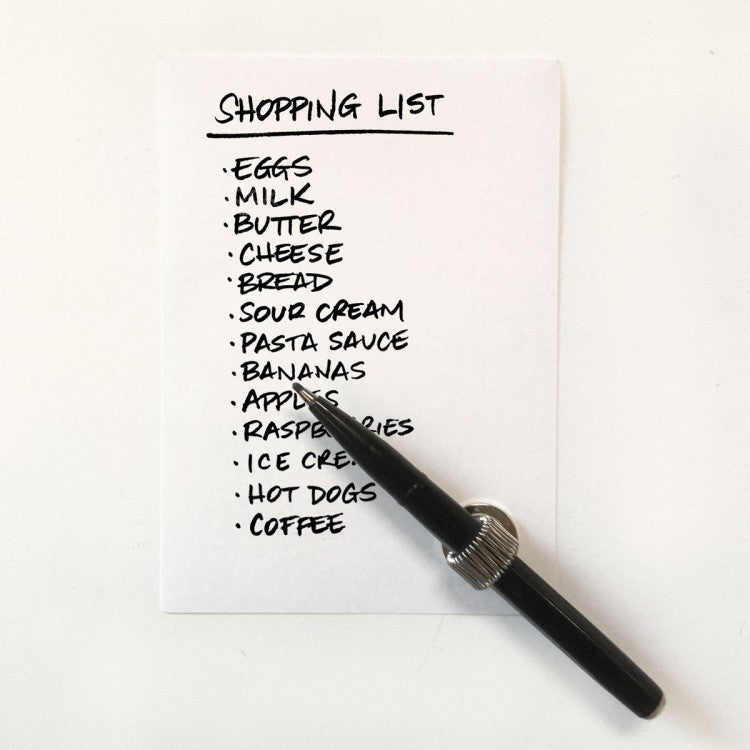 SHOPPING LIST
· EGGS
· MILK
· BUTTER
· CHEESE
· BREAD
· SOUR CREAM
· PASTA SAUCE
· BANANAS
· APPLES
· RASPBERRIES
· ICE CREAM
· HOT DOGS
· COFFEE